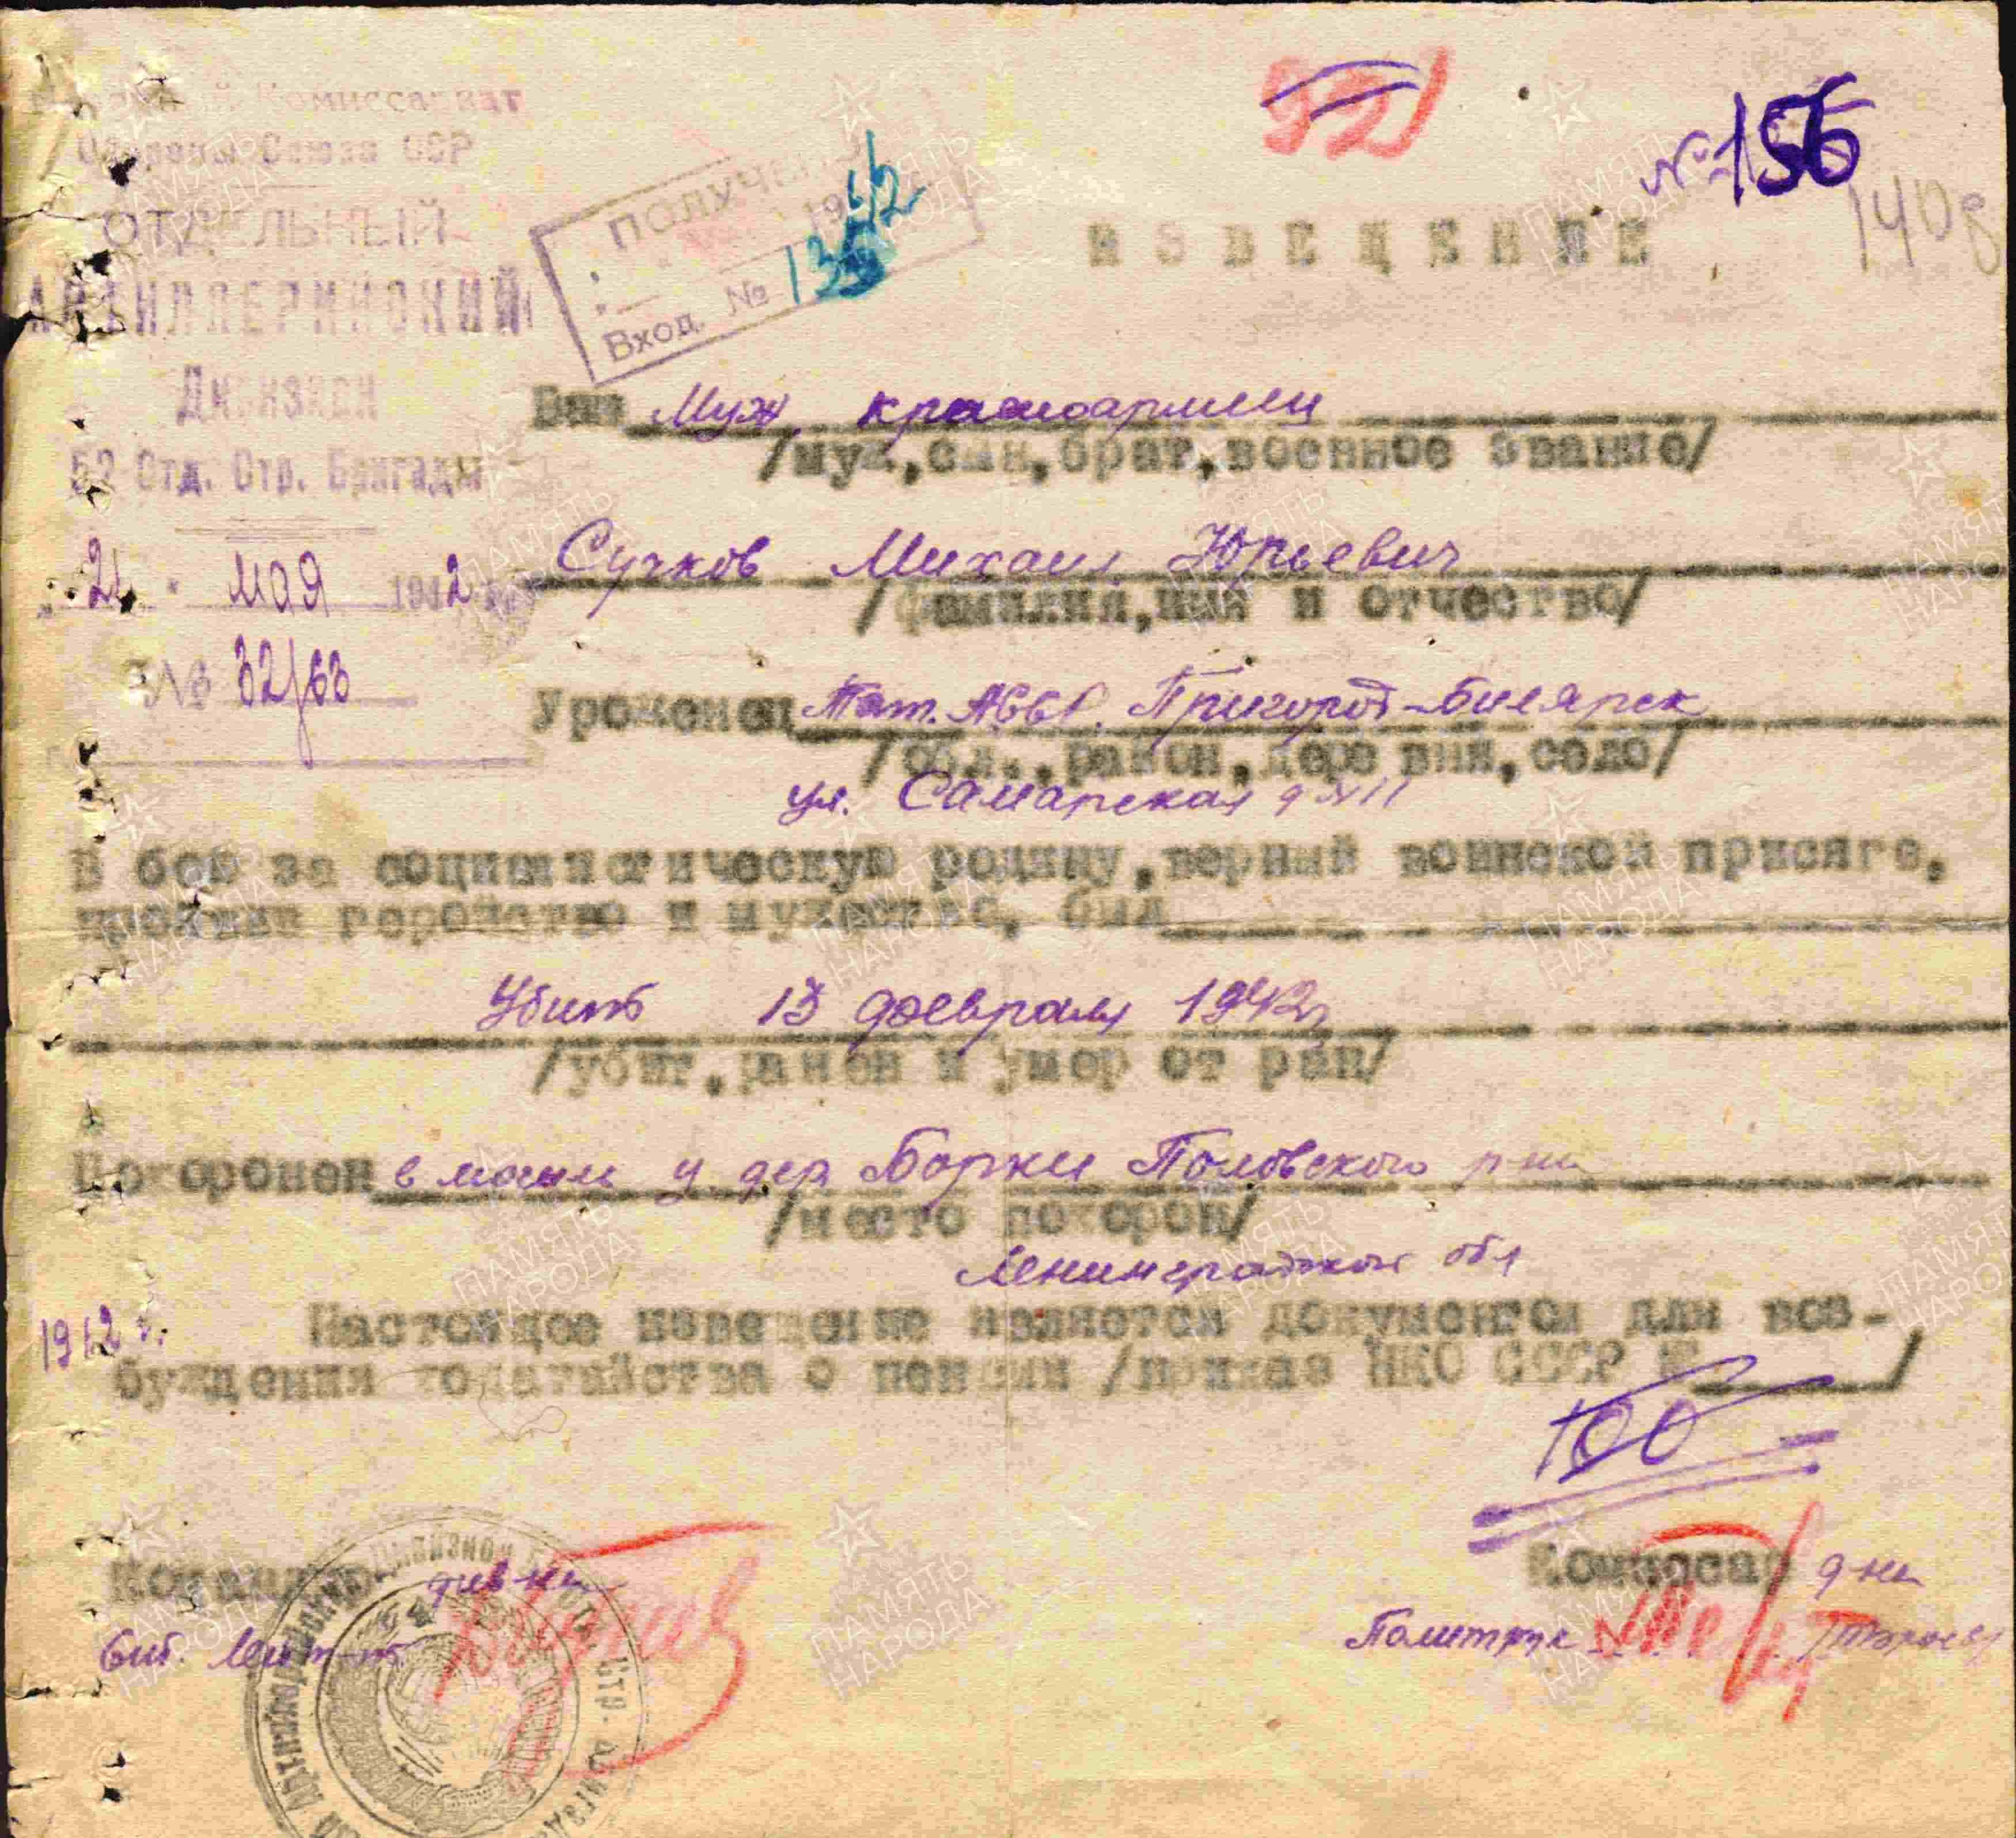 Народный Комиссариат
Обороны Союза ССР
ОТДЕЛЬНЫЙ
АРТИЛЛЕРИЙСКИЙ
Дивизион
52 Отд. Стр. Бригады
21 " мая 1942
№ 32/63
ПОЛУЧЕНО
Вход. №
521
№ 156
1408
ИЗВЕЩЕНИЕ
Ваш Муж, красноармеец
/муж,сын,брат,военное звание/
Сучков Михаил Юрьевич
/фамилия,имя и отчество/
Уроженец Тат. АССР. Пригород-Билярск
/обл.,район,деревня,село/
ул. Самарская д №11
В бою за социалистическую родину,верный воинской присяге,
проявив геройство и мужество, был
Убит 13 февраля 1942г
/убит,ранен и умер от ран/
Похоронен в могиле у дер Борки Половского р-на
/место похорон/
Ленинградской обл
1942 г.
Настоящее извещение является документом для воз-
буждения ходатайства о пенсии /приказ НКО СССР № /
100
Командир див-на
Комиссар д-на
Политрук
ПАМЯТЬ
НАРОДА